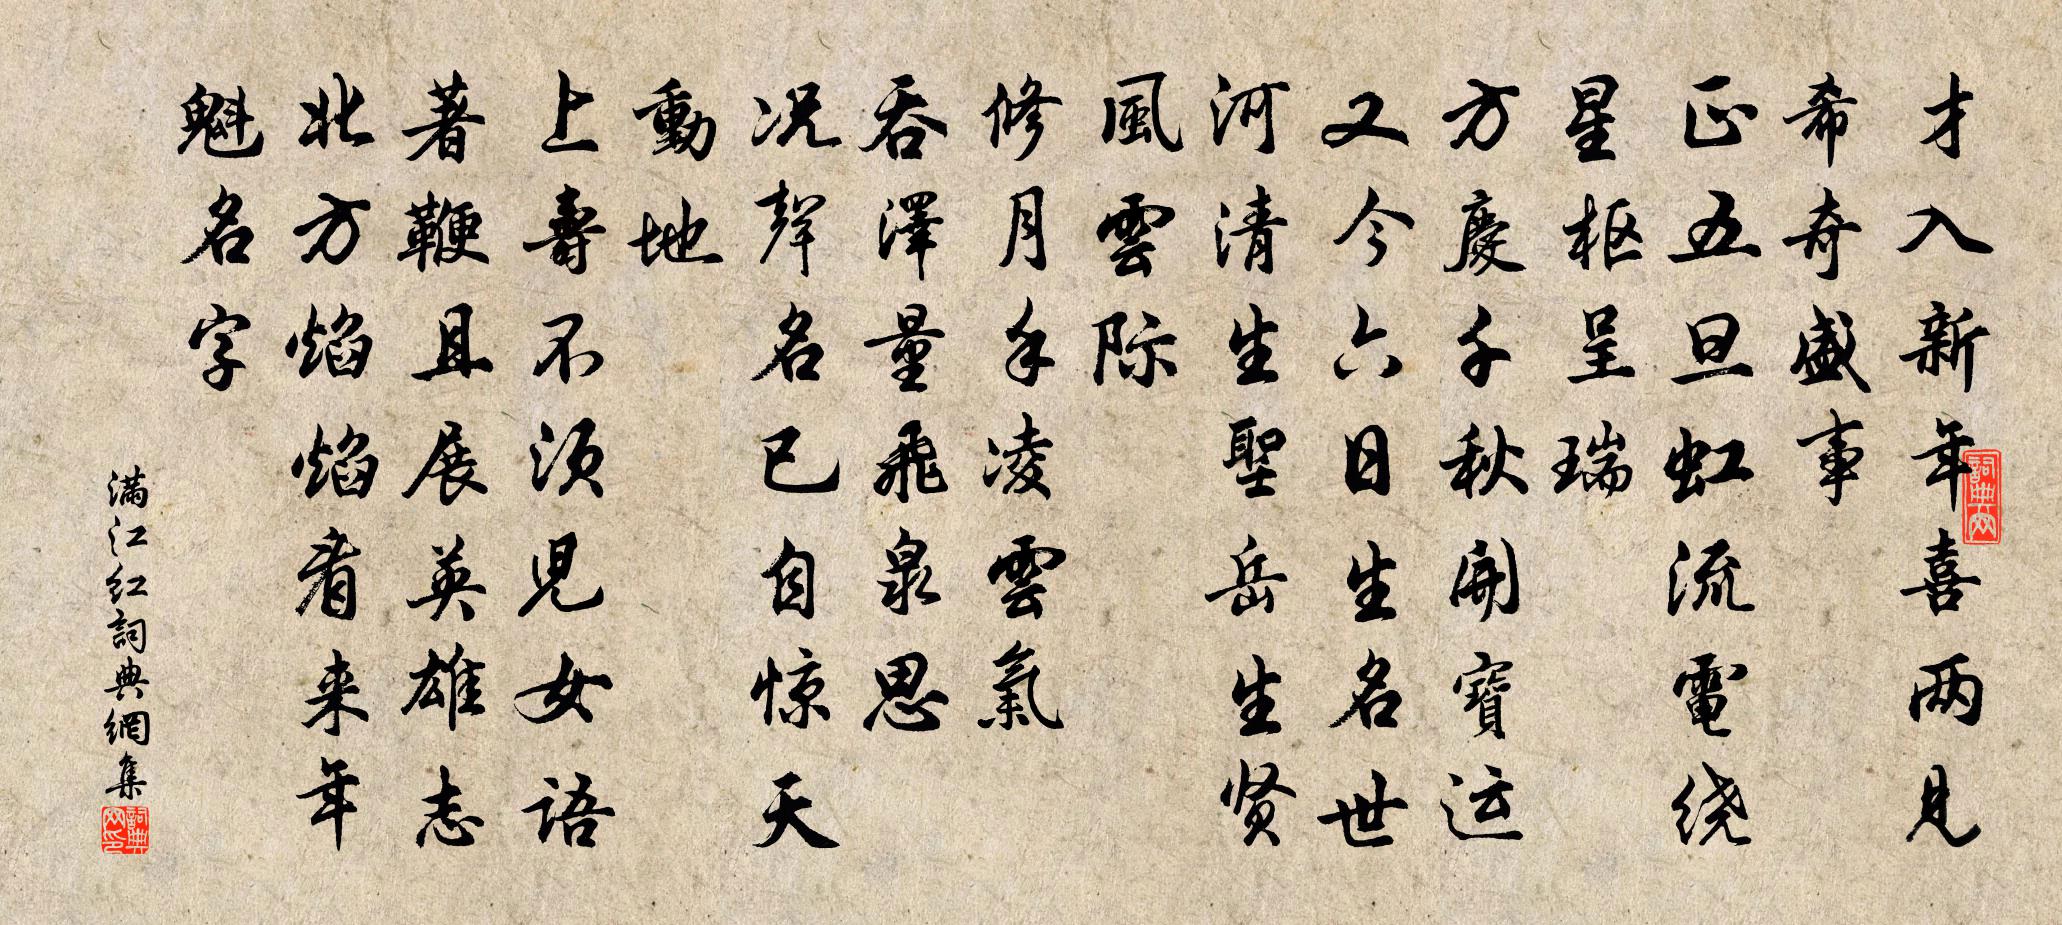 才入新年喜两見
希奇盛事
正五旦虹流電绕
星枢呈瑞
方慶千秋開寶运
又今六日生名世
河清生聖岳生生贤
風雲际
修月手凌雲氣
吞澤量飛泉思
况聲名已自惊天
動地
上壽不须児女語
著鞭且展英雄志
北方焰焰看来年
魁名字
满江红詞典網集
詞典网
詞典网印